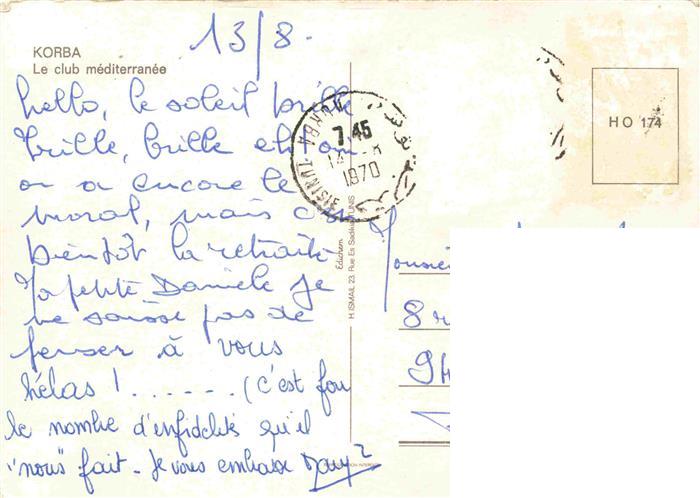 13/8.
KORBA
Le club méditerranée
hello, le soleil brille
brille, brille et
on a encore le
moral, mais c'est
bientôt la retraite
la petite Danièle je
ne pas de
penser à vous
hélas ! ...... (c'est fou
le nombre d'infidélités qu'il
"nous" fait - Je vous embrasse
KORBA TUNISIE
7 45
14 -8
1970
HO 174
Edichem
H. ISMAIL 23, Rue Es Sadikia TUNIS
8 r
94